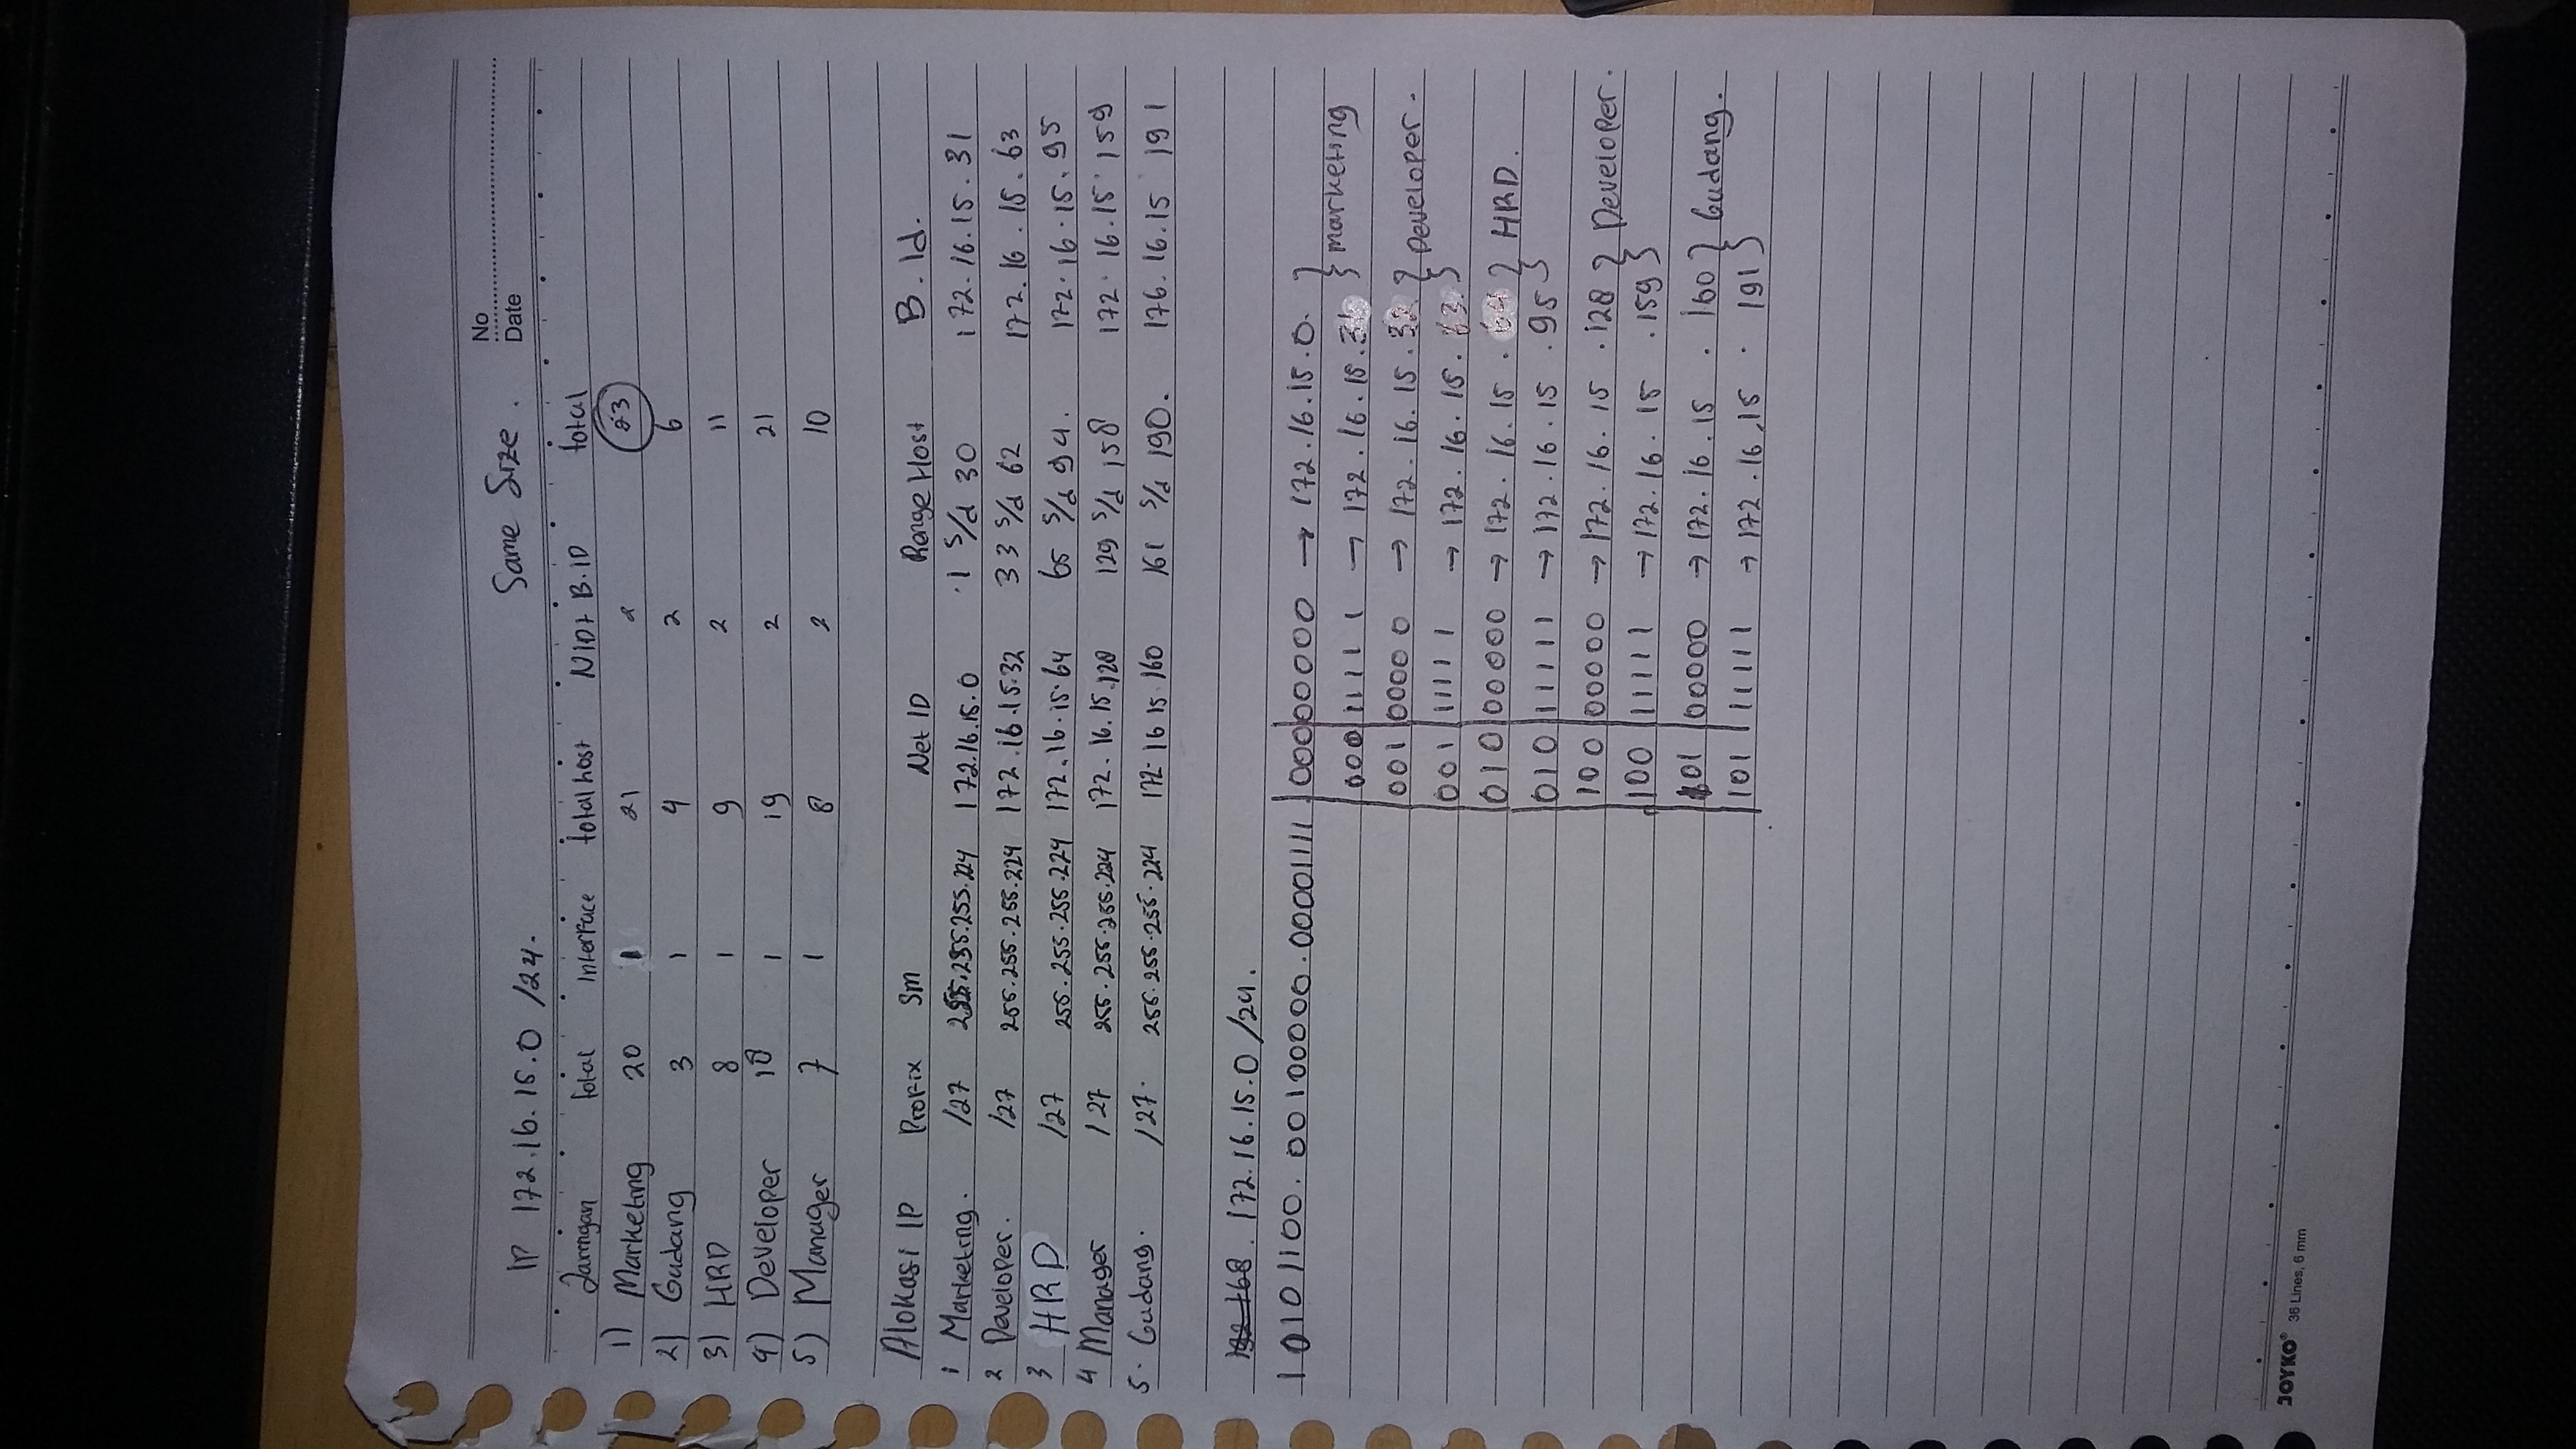 No
Date
IP 172.16.15.0 /24. Same Size .
Jaringan total Interface total host NID+ B.ID total
1) Marketing 20 1 21 2 23
2) Gudang 3 1 4 2 6
3) HRD 8 1 9 2 11
4) Developer 18 1 19 2 21
5) Manager 7 1 8 2 10
Alokasi IP Prefix Sm Net ID Range Host B. Id.
1 Marketing. /27 255.255.255.224 172.16.15.0 .1 s/d 30 172.16.15.31
2 Developer. /27 255.255.255.224 172.16.15.32 33 s/d 62 172.16.15.63
3 HRD /27 255.255.255.224 172.16.15.64 65 s/d 94. 172.16.15.95
4 Manager /27 255.255.255.224 172.16.15.128 129 s/d 158 172.16.15.159
5. Gudang. /27. 255.255.255.224 172.16 15 160 161 s/d 190. 176.16.15 191
192 168 . 172.16.15.0 /24.
10101100. 00100000.00001111 |000|00000 → 172.16.15.0. } marketing
000|11111 → 172.16.15.31
001|00000 → 172.16.15.32 } Developer.
001|11111 → 172.16.15.63.
010|00000 → 172.16.15.64 } HRD.
010|11111 → 172.16.15.95
100|00000 → 172.16.15.128 } Developer.
100|11111 → 172.16.15.159
101|00000 → 172.16.15.160 } Gudang.
101|11111 → 172.16.15.191
JOYKO® 36 Lines, 6 mm